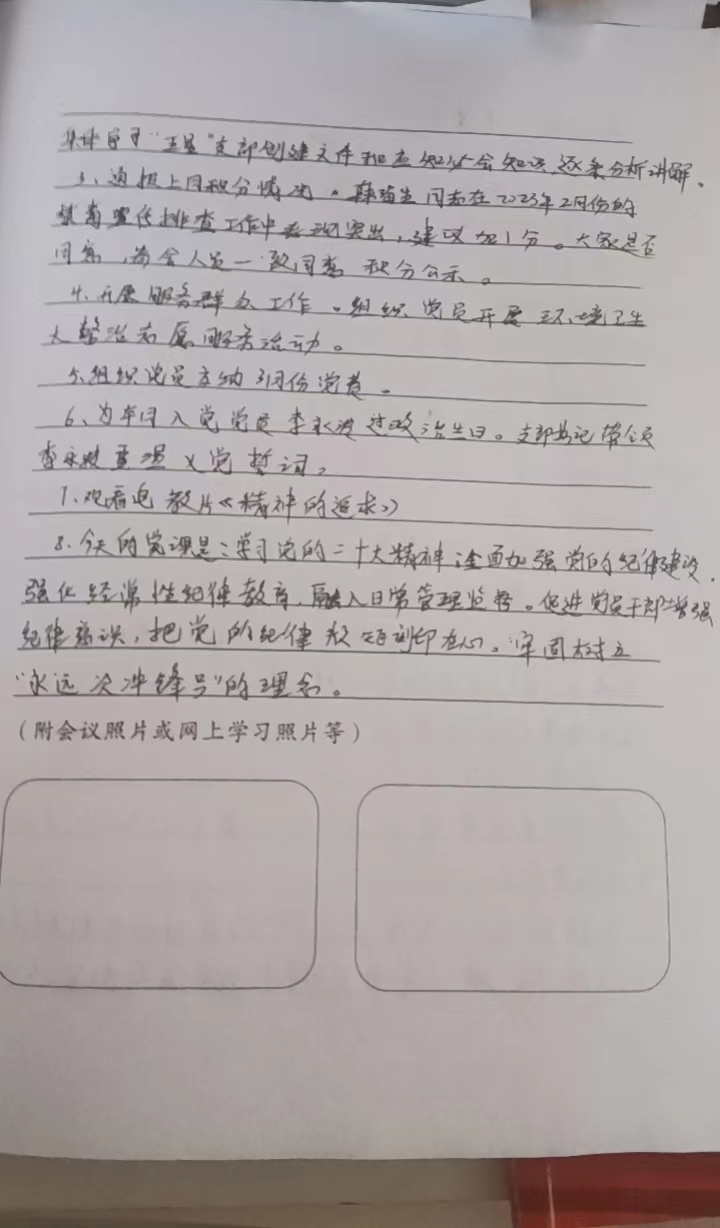 集体学习“五星”支部创建文件和应知应会知识,逐条分析讲解。
3、通报上月积分情况。同志在2023年2月份的
宣传排查工作中表现突出,建议加1分。大家是否
同意,与会人员一致同意 积分公示。
4.开展服务群众工作。组织党员开展环境卫生
大整治志愿服务活动。
5.组织党员交纳3月份党费。
6、为本月入党党员李永波过政治生日。支部书记带领
李永波重温入党誓词。
7.观看电教片《精神的追求》
8.今天的党课是:学习党的二十大精神,全面加强党的纪律建设,
强化经常性纪律教育,融入日常管理监督。促进党员干部增强
纪律意识,把党的纪律规矩刻印在心。牢固树立
“永远吹冲锋号”的理念。
(附会议照片或网上学习照片等)